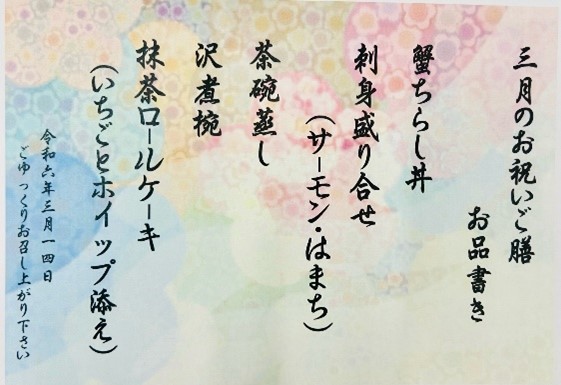 三月のお祝いご膳
お品書き
蟹ちらし丼
刺身盛り合せ
(サーモン・はまち)
茶碗蒸し
沢煮椀
抹茶ロールケーキ
(いちごとホイップ添え)
令和六年三月一四日
ごゆっくりお召し上がり下さい